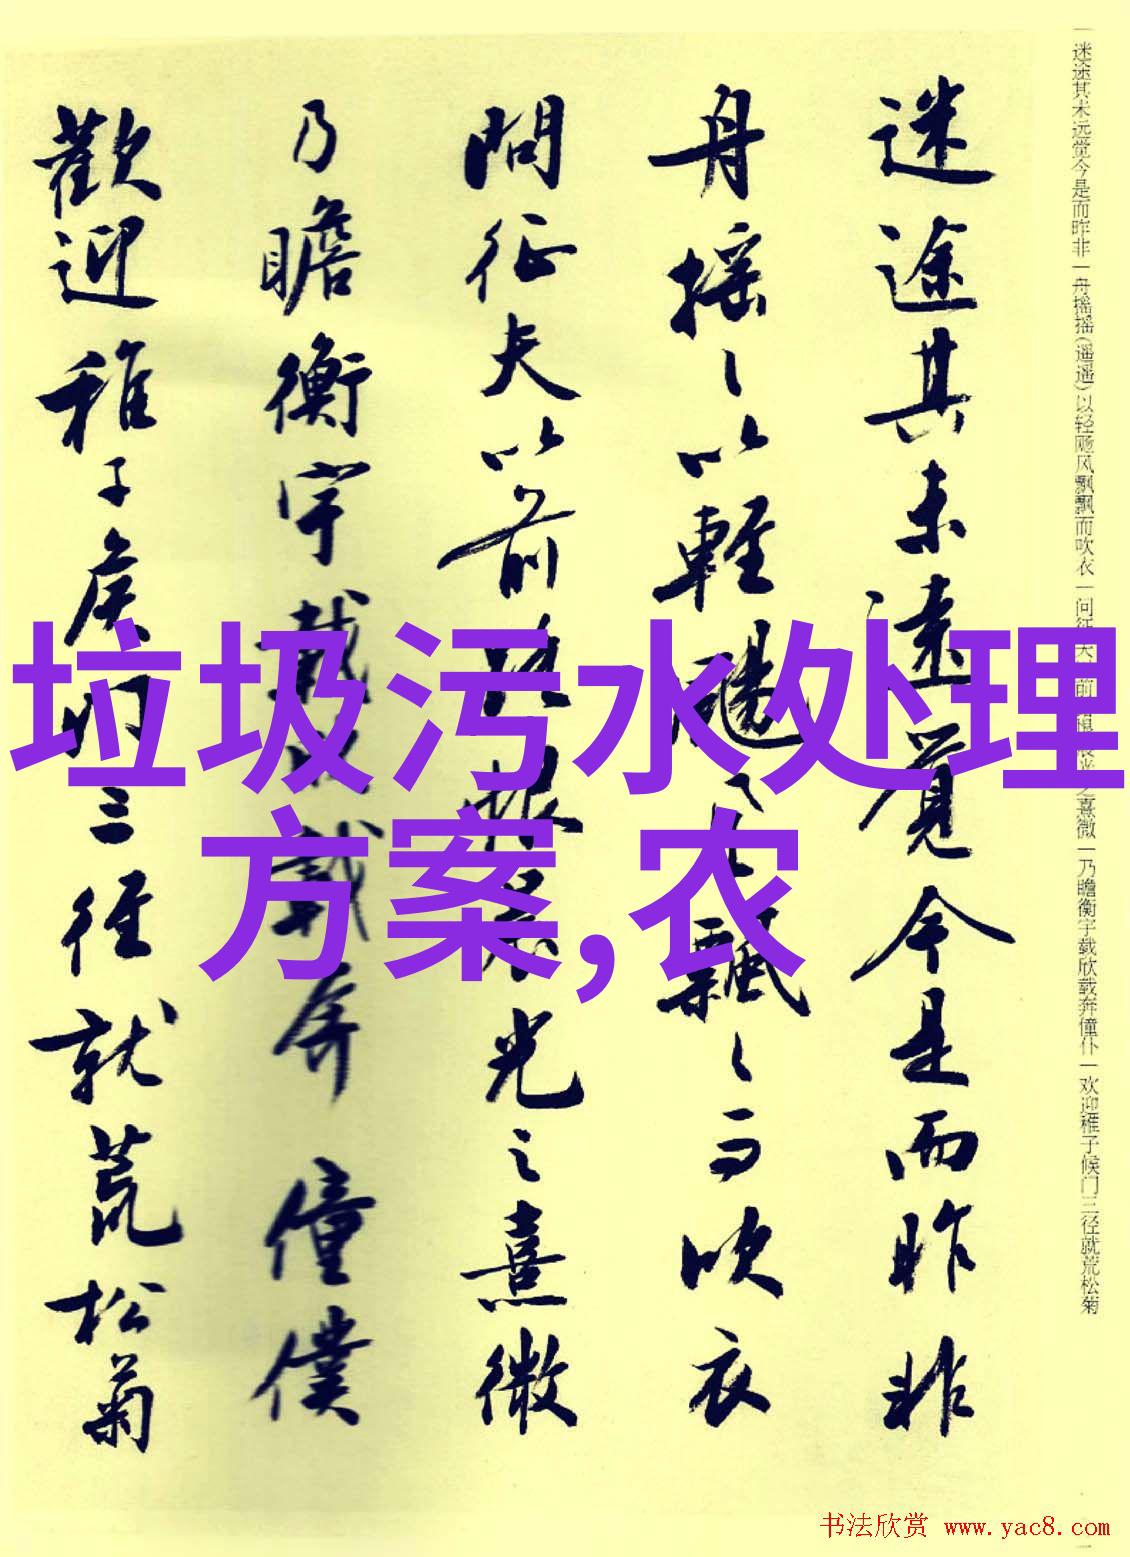 迷途其未远觉今是而昨非一舟摇摇(遥遥)以轻飏风飘飘而吹衣一问征夫
前
熹微一乃瞻衡宇载欣载奔僮仆一欢迎稚子候门三径就荒松菊
迷途其未遠覺今是而昨非
舟摇〻以輕颺風飄〻而吹衣
問征夫以前路恨晨光之熹微
乃瞻衡宇載欣載奔僮僕
歡迎稚子候門三徑就荒松菊
垃圾污水处理
方案,农
书法欣赏 www.yac8.com